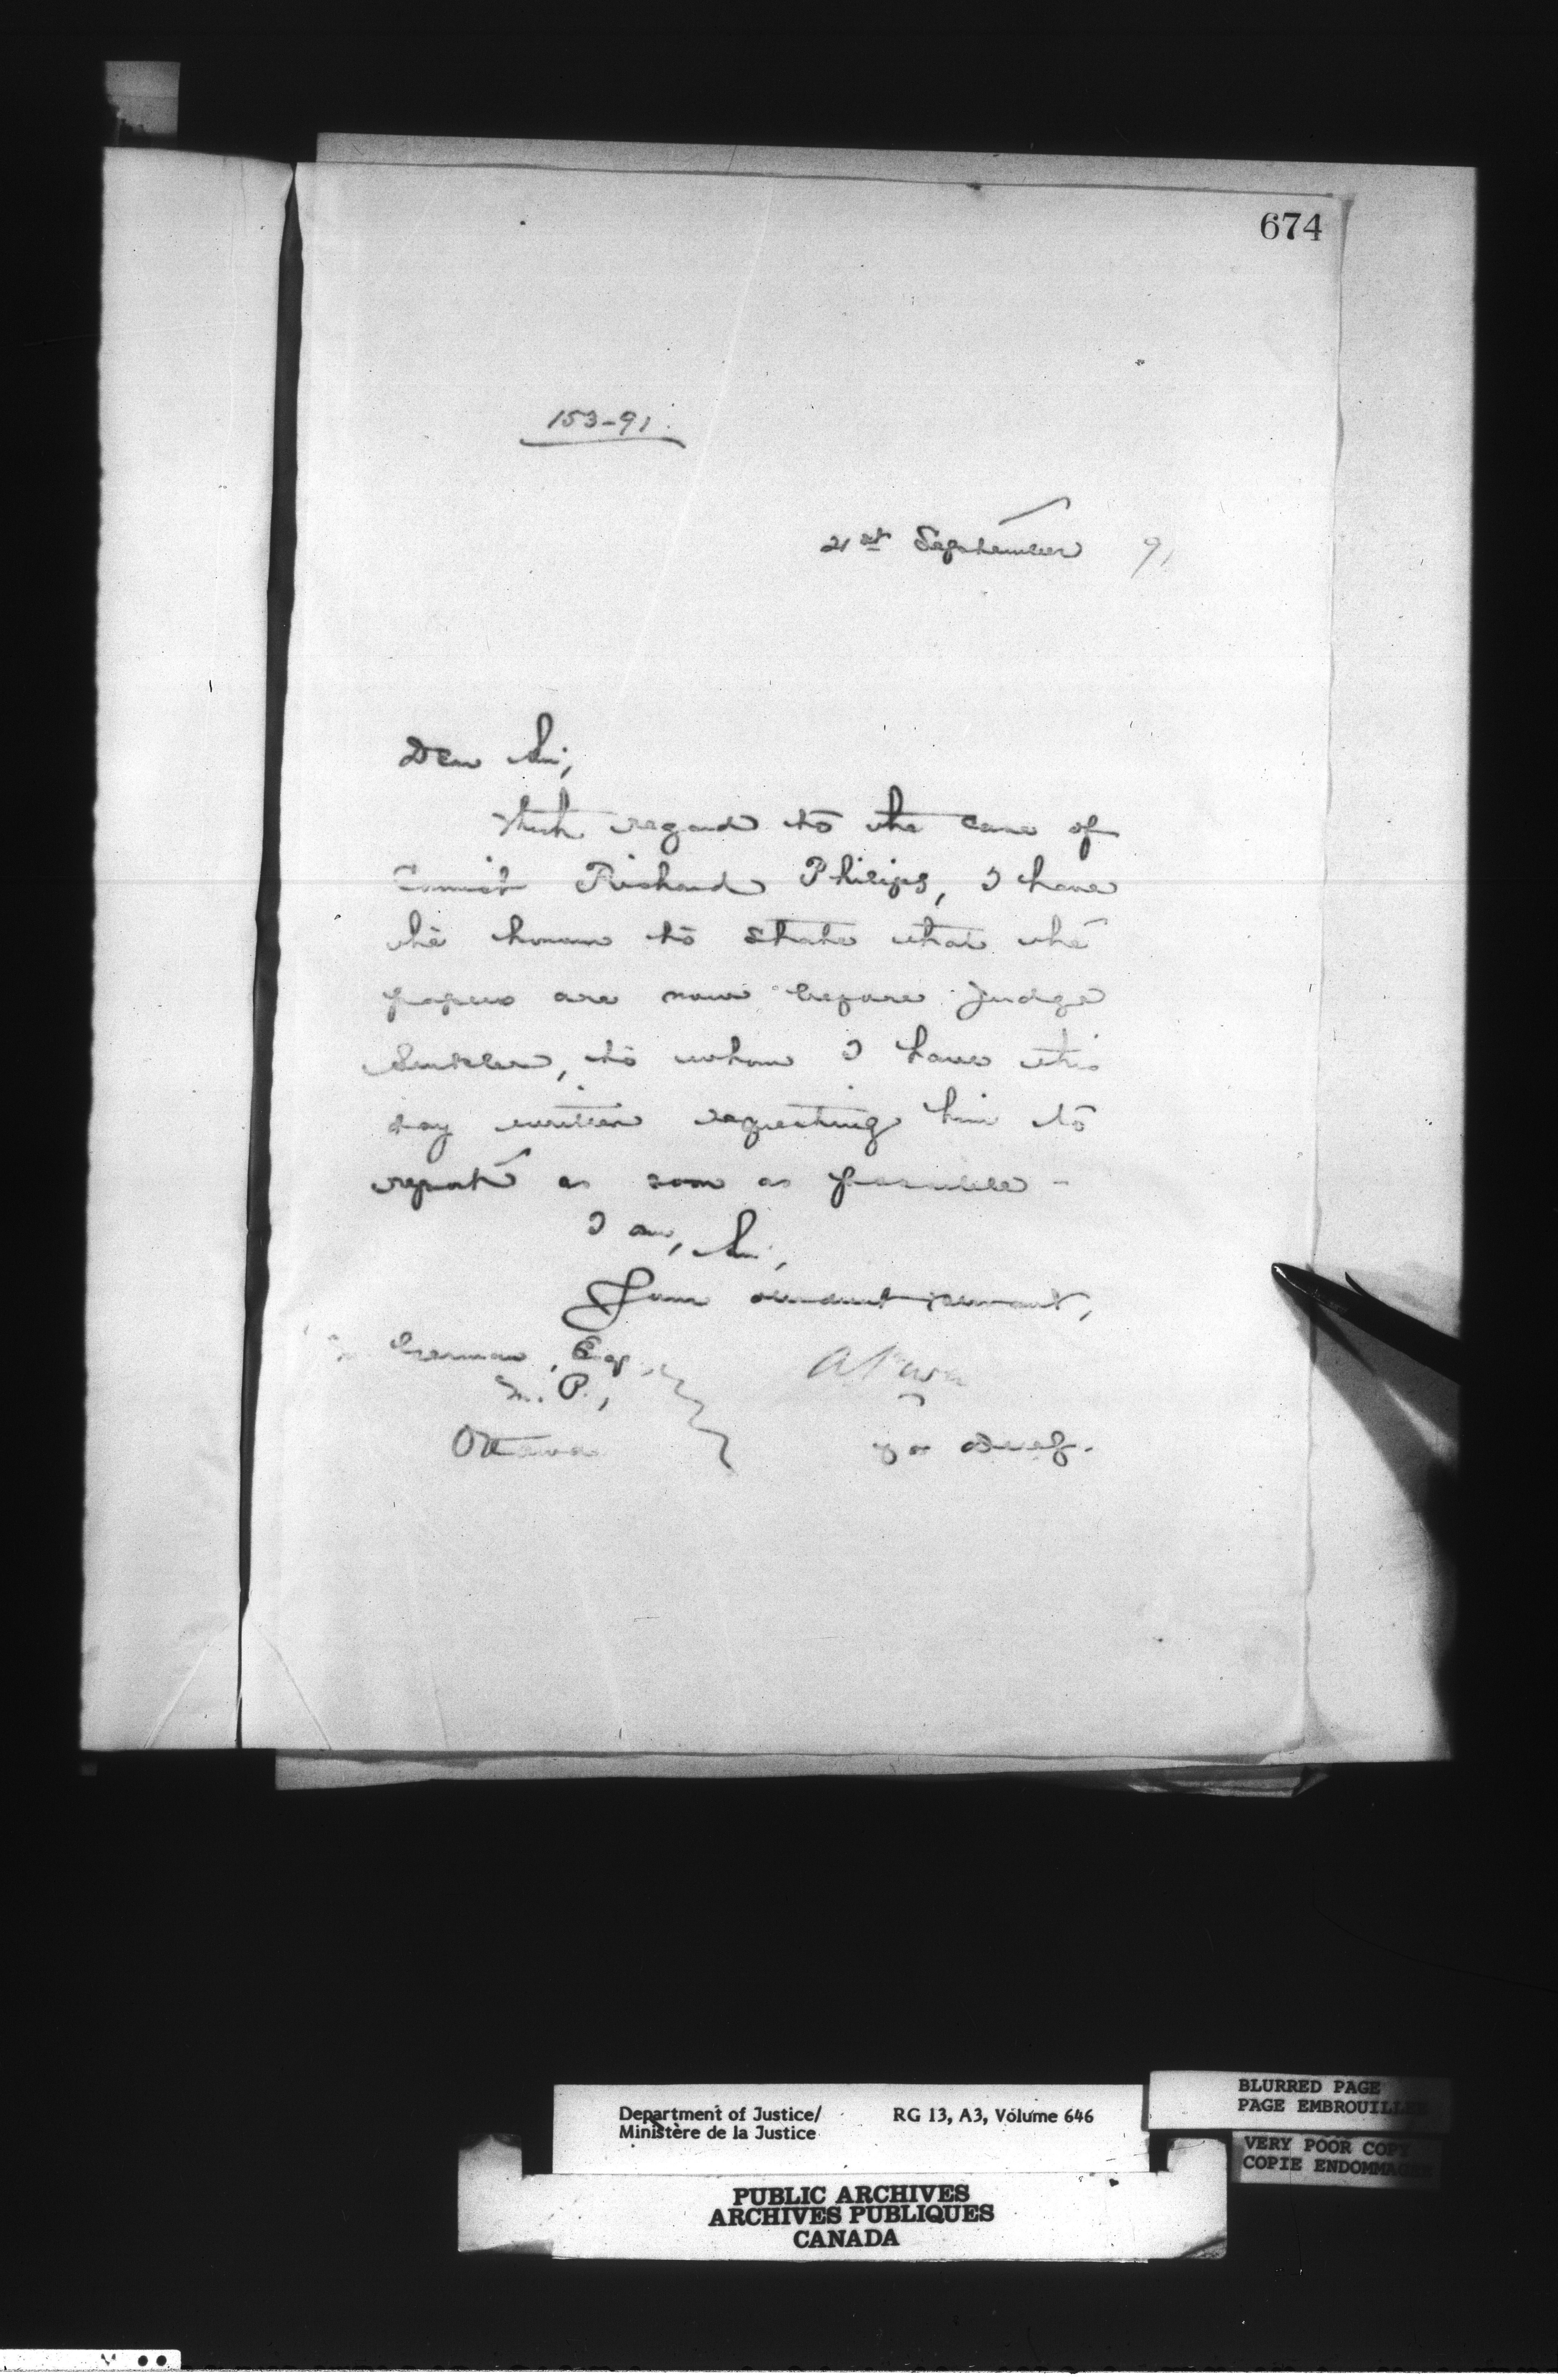 674
153-91.
21st September 91
Dear Sir,
With regard to the case of
Convict Richard Philips, I have
the honour to state that the
papers are now before Judge
Senkler, to whom I have this
day written requesting him to
report as soon as possible -
I am, Sir,
Your obedient servant,
German, Esq
M.P.,
Ottawa
A. Power
for D.M.J.
Department of Justice/
Ministère de la Justice
RG 13, A3, Volume 646
BLURRED PAGE
PAGE EMBROUILLEE
VERY POOR COPY
COPIE ENDOMMAGEE
PUBLIC ARCHIVES
ARCHIVES PUBLIQUES
CANADA